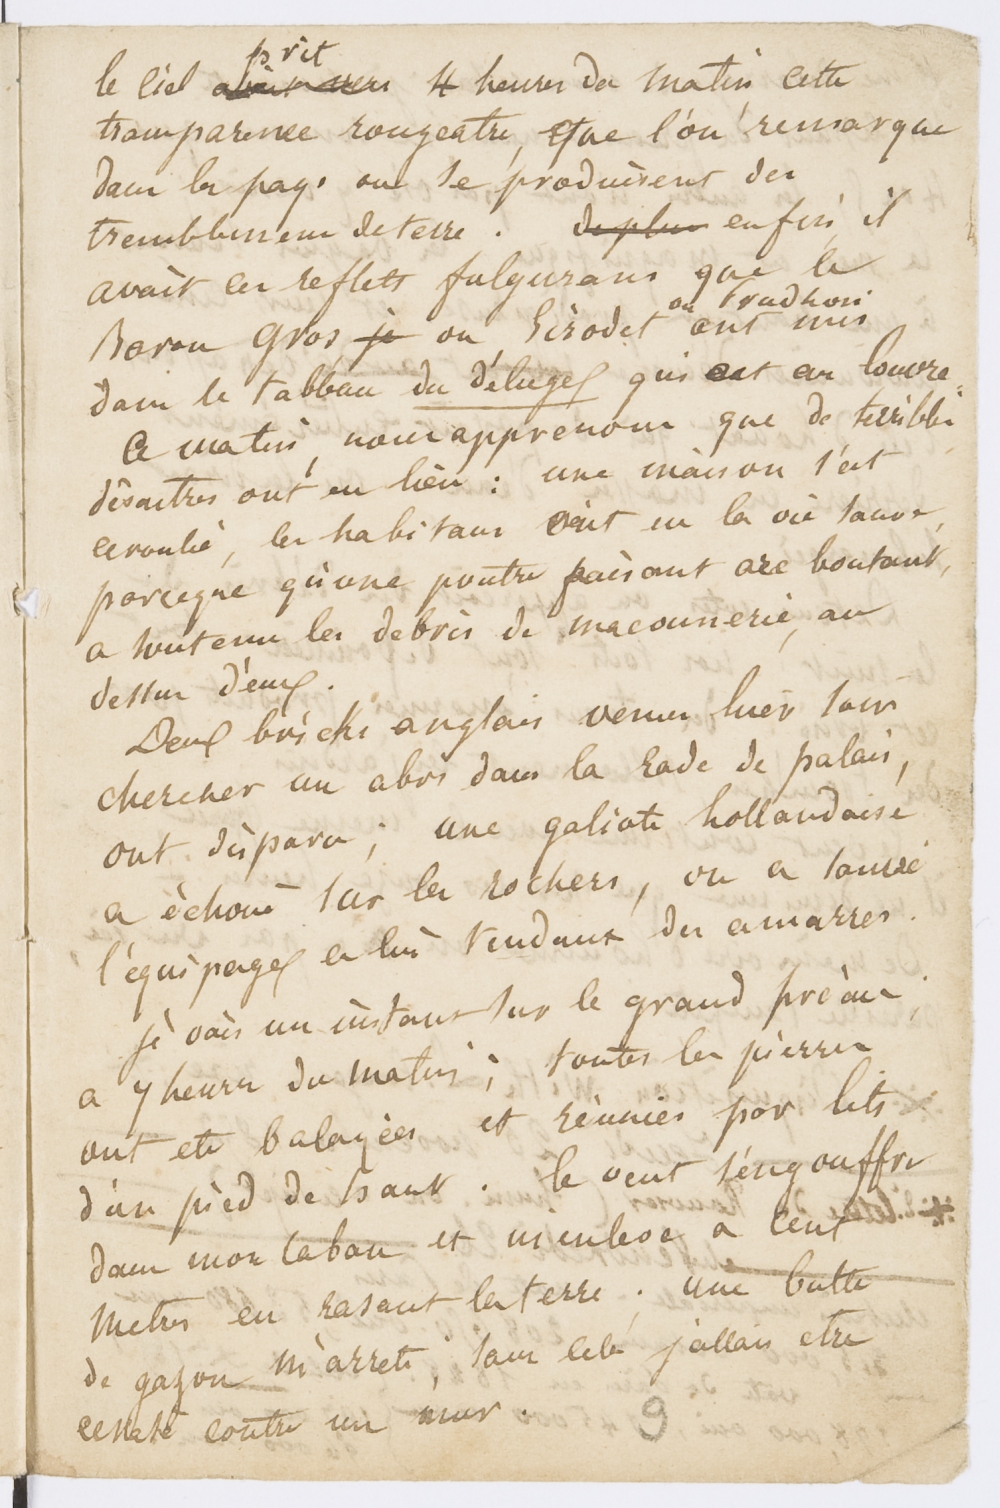 prit
le ciel avait vers 4 heures du matin cette
transparence rougeatre, que l'on remarque
dans les pays ou se produisent des
tremblemens de terre. de plus enfin, il
avait ces reflets fulgurans que le
Baron Gros je ou Girodet ou Prudhon ont mis
dans le tableau du déluge qui est au louvre.
Ce matin, nous apprenons que de terribles
désastres ont eu lieu : une maison s'est
ecroulé, les habitans ont eu la vie sauve,
parceque qu'une poutre faisant arc boutant,
a soutenu les debris de maconnerie, au
dessus d'eux.
Deux bricks anglais venus hier soir
chercher un abri dans la rade de palais,
ont disparu ; une galiote hollandaise
a échoué sur les rochers, on a sauvé
l'équipage en lui tendant des amarres.
je vais un instant sur le grand préau,
a 7 heures du matin ; toutes les pierres
ont ete balayées et réunies par lits
d'un pied de haut. le vent s'engouffre
dans mon caban et m'enleve a cent
metres en rasant la terre. une butte
de gazon m'arrete, sans cela j'allais etre
ecrasé contre un mur.
9